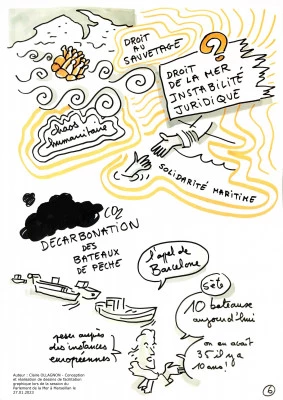 DROIT
AU
SAUVETAGE
?
DROIT
DE LA MER :
INSTABILITÉ
JURIDIQUE
chaos
humanitaire
SOLIDARITÉ MARITIME
CO2
DECARBONATION
DES
BATEAUX
DE PÊCHE
l'apel de
Barcelone
Sète
10 bateaux
aujourd'hui
on en avait
35 il y a
10 ans !
pese auprès
des instances
européennes
Auteur : Claire OLLAGNON - Conception
et réalisation de dessins de facilitation
graphique lors de la session du
Parlement de la Mer à Marseillan le
27.01.2023
6